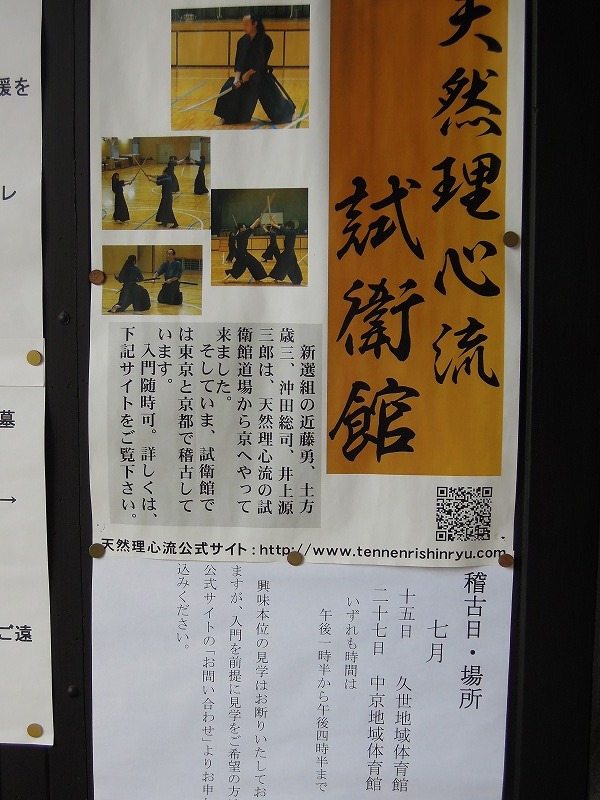 天然理心流
試衛館
新選組の近藤勇、土方
歳三、沖田総司、井上源
三郎は、天然理心流の試
衛館道場から京へやって
来ました。
そしていま、試衛館で
は東京と京都で稽古して
います。
入門随時可。詳しくは、
下記サイトをご覧下さい。
天然理心流公式サイト:http://www.tennenrishinryu.com
稽古日・場所
七月
十五日 久世地域体育館
二十七日 中京地域体育館
いずれも時間は
午後一時半から午後四時半まで
興味本位の見学はお断りいたしてお
ますが、入門を前提に見学をご希望の方は
公式サイトの「お問い合わせ」よりお申
込みください。
援を
レ
墓
→
ご遠